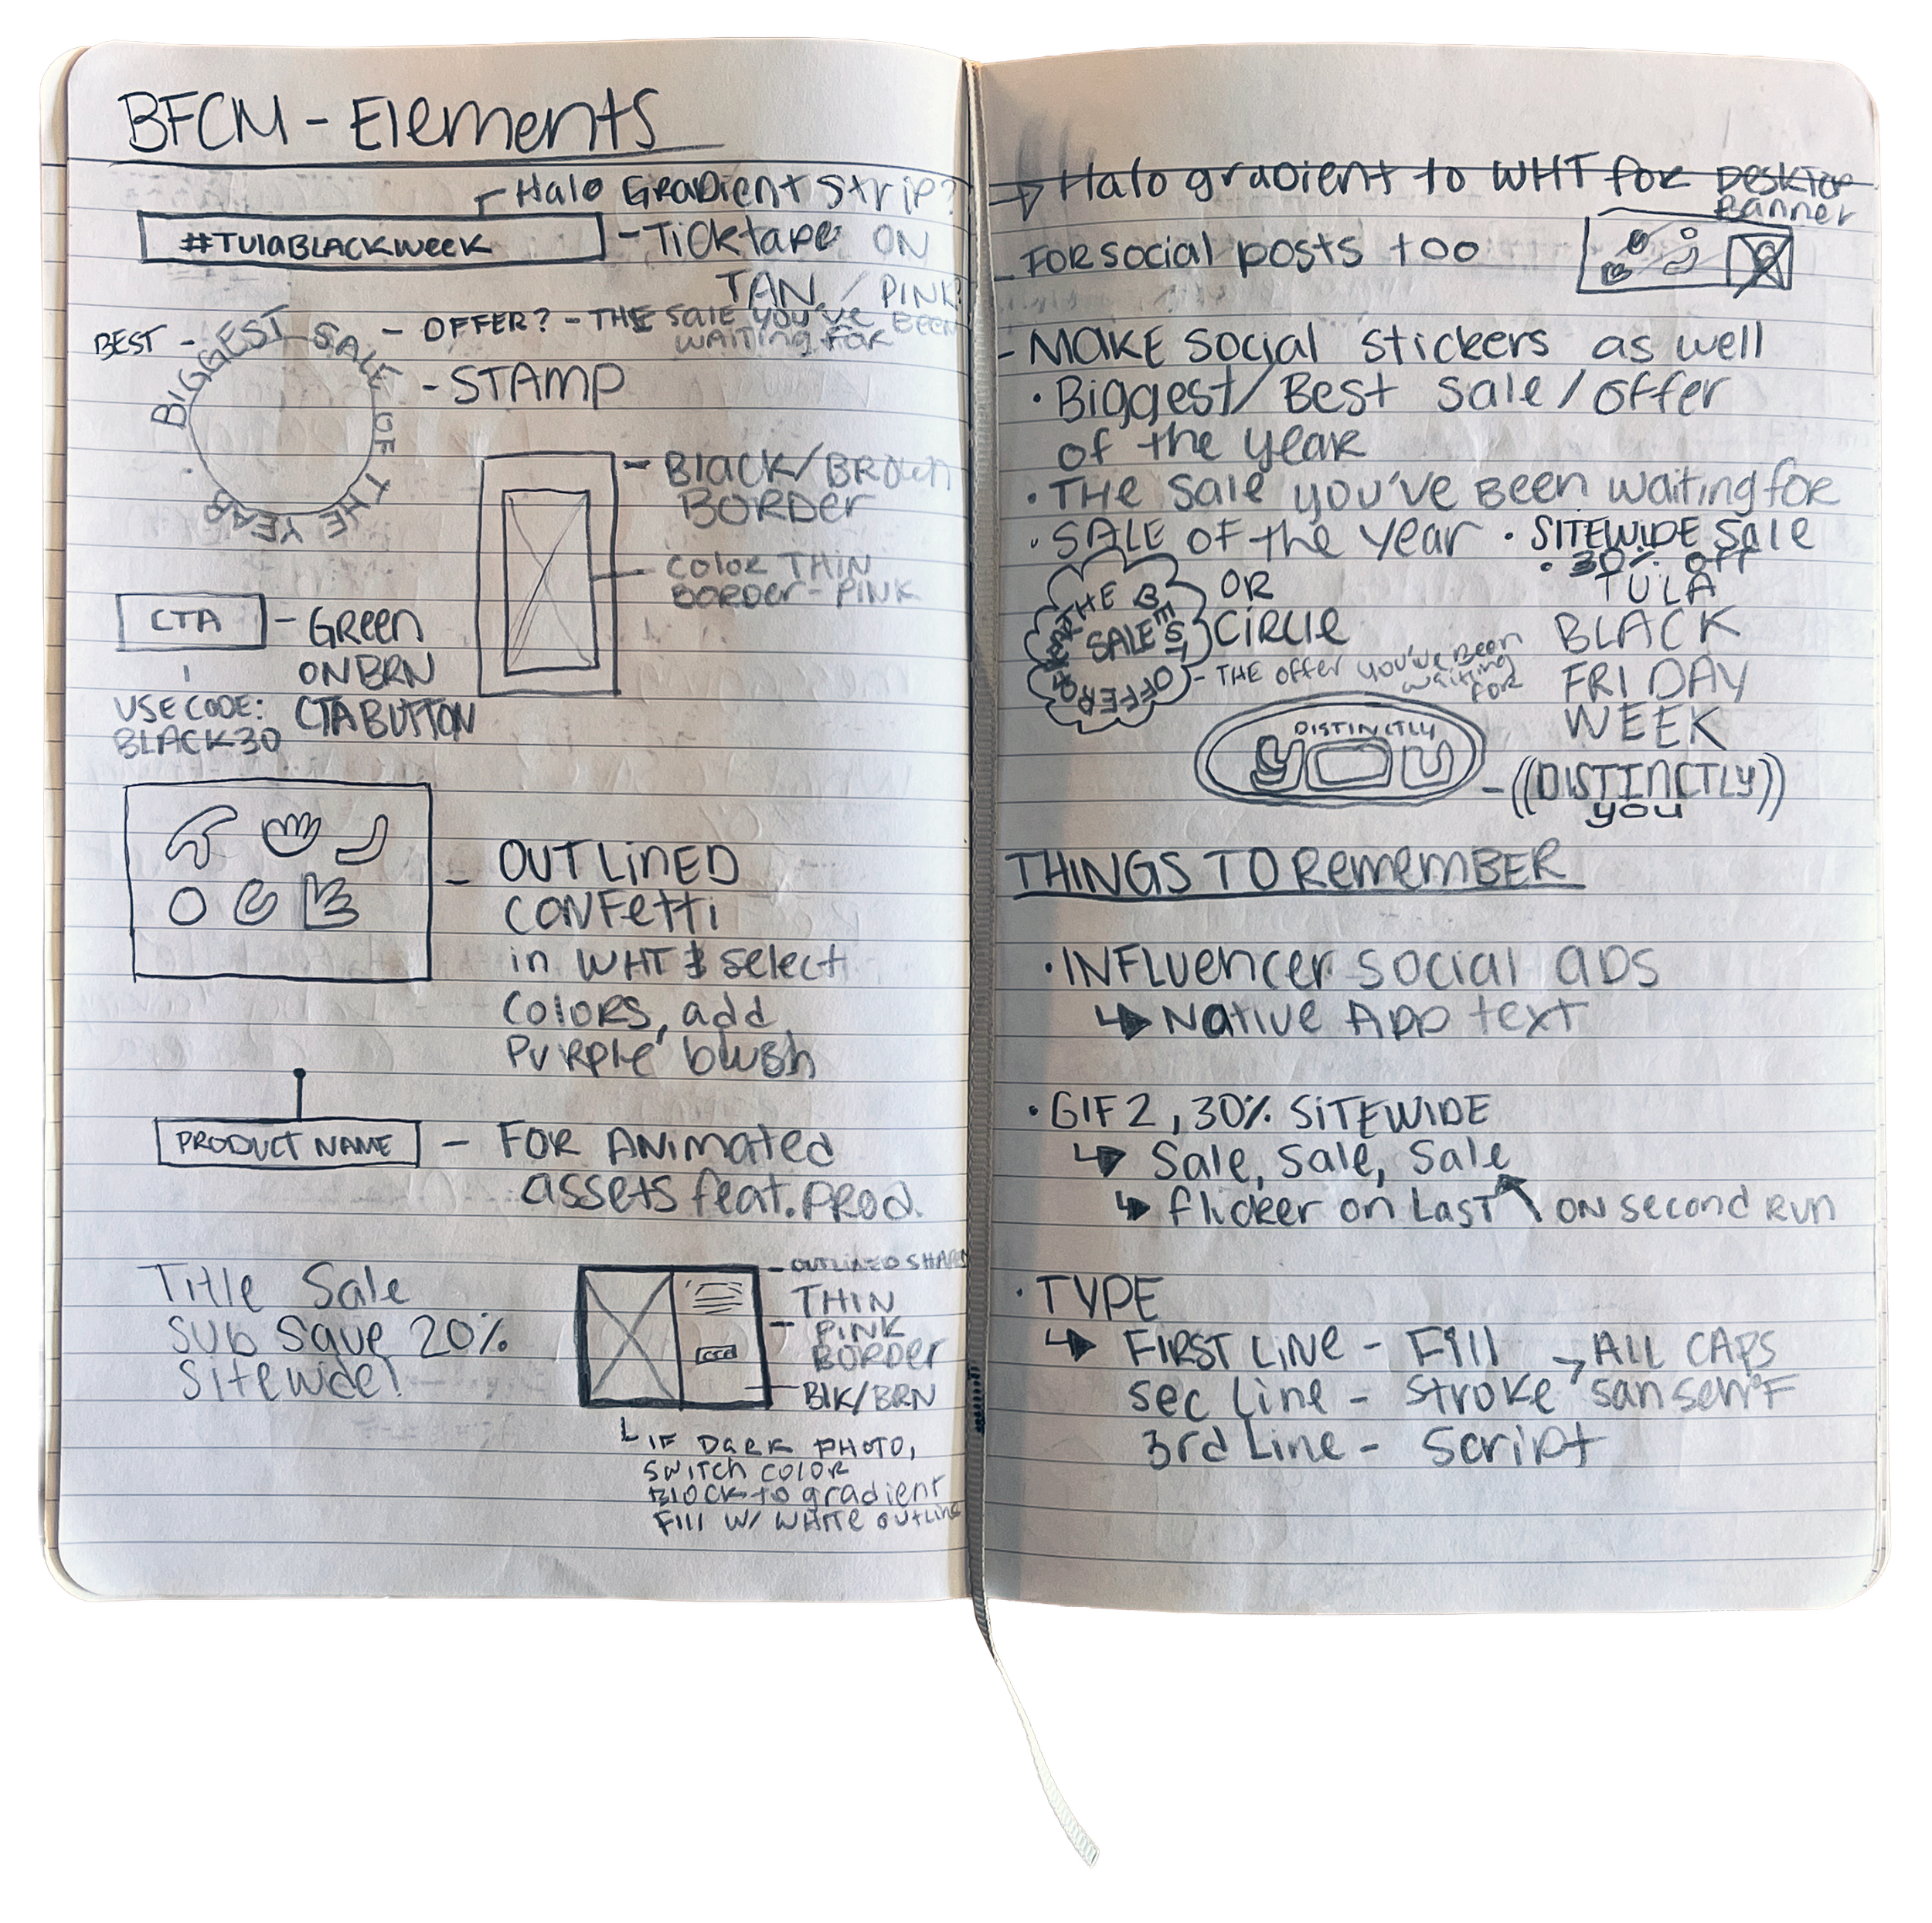 BFCM - Elements
Halo Gradient Strip?
#TulaBLACKWeek
- Ticktape ON
TAN / PINK?
BEST -
- OFFER? - THE Sale YOU'VE BEEN
WAITING FOR
BIGGEST SALE OF THE YEAR .
- STAMP
- Black/BROWN
BORDER
Color THIN
BORDER - PINK
CTA
- GReen
ON BRN
CTA BUTTON
USE CODE:
BLACK30
- OUTLINED
CONFetti
in WHT & select
Colors, add
Purple blush
PRODUCT NAME
- FOR ANimated
assets feat. PROD.
Title Sale
Sub Save 20%
Sitewide!
- OUTLINED SHAPES
THIN
- PINK
BORDER
BLK/BRN
IF DARK PHOTO,
SWITCH COLOR
BLOCK to gradient
Fill W/ WHITE outline
→ Halo gradient to WHT for Desktop
Banner
- FOR social posts too
- MAKE Social Stickers as well
• Biggest/Best Sale/Offer
of the year
• THE Sale you've Been waiting for
• SALE OF the Year • SITEWIDE Sale
• 30% Off
THE BEST OFFER OF THE YEAR
SALE
OR
CIRCLE
- THE Offer you've Been
waiting
FOR
TULA
BLACK
FRIDAY
WEEK
DISTINCTLY
you
- ((DISTINCTLY))
you
THINGS TO RemeMBER
• INFLuencer Social ADS
↳ Native App text
• GIF 2, 30% SITEWIDE
↳ Sale, Sale, Sale
↳ flicker on Last ON second RUN
• TYPE
↳ FIRST LINE - Fill → ALL CAPS
Sec Line - Stroke san serif
3rd Line - Script